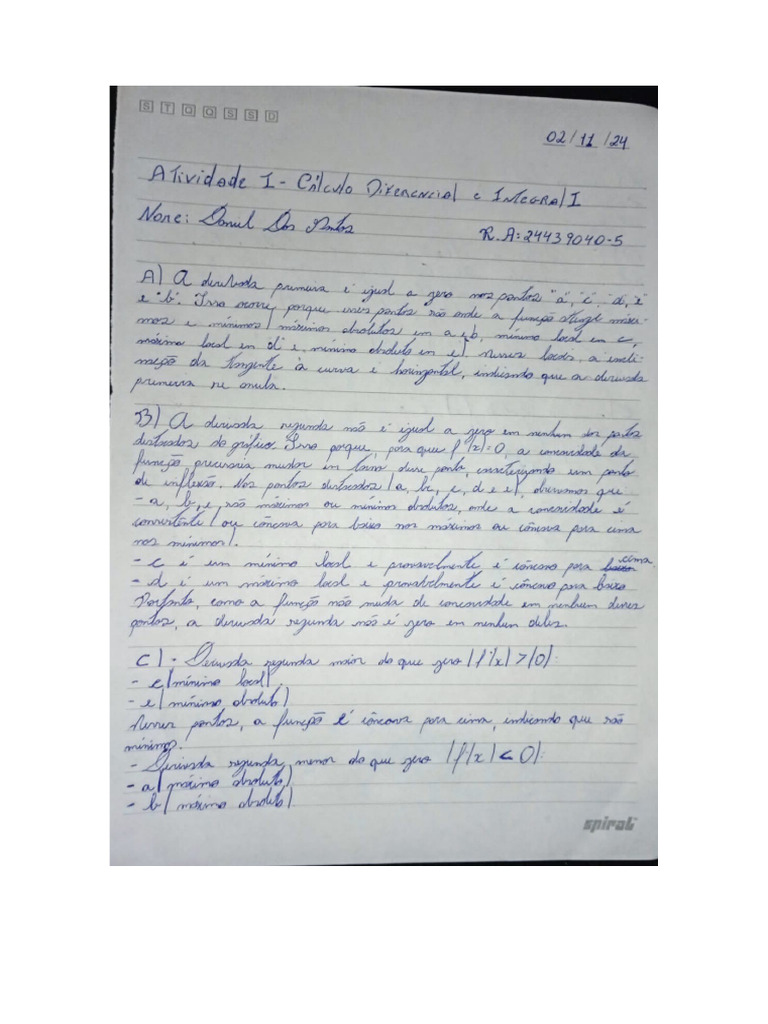 S T Q Q S S D
02/11/24
Atividade I - Cálculo Diferencial e Integral I
Nome: Dos Santos
R.A: 24439040-5
A) A derivada primeira é igual a zero nos pontos "a", "c", "d", "e"
e "b". Isso ocorre porque esses pontos são onde a função atinge máxi-
mos e mínimos (máximos absolutos em a e b, mínimo local em c,
máximo local em d e mínimo absoluto em e). Nesses locais, a incli-
nação da tangente à curva é horizontal, indicando que a derivada
primeira se anula.
B) A derivada segunda não é igual a zero em nenhum dos pontos
destacados do gráfico. Isso porque, para que f''(x)=0, a concavidade da
função precisaria mudar em torno desse ponto, caracterizando um ponto
de inflexão. Nos pontos destacados (a, b, c, d e e), observamos que
- a, b, e, são máximos ou mínimos absolutos, onde a concavidade é
consistente (ou côncava para baixo nos máximos ou côncava para cima
nos mínimos).
- c é um mínimo local e provavelmente é côncavo para cima
- d é um máximo local e provavelmente é côncavo para baixo
Portanto, como a função não muda de concavidade em nenhum desses
pontos, a derivada segunda não é zero em nenhum deles.
C) - Derivada segunda maior do que zero (f''(x) > 0):
- c (mínimo local).
- e (mínimo absoluto)
Nesses pontos, a função é côncava para cima, indicando que são
mínimos.
- Derivada segunda menor do que zero (f''(x) < 0):
- a (máximo absoluto)
- b (máximo absoluto).
spiral